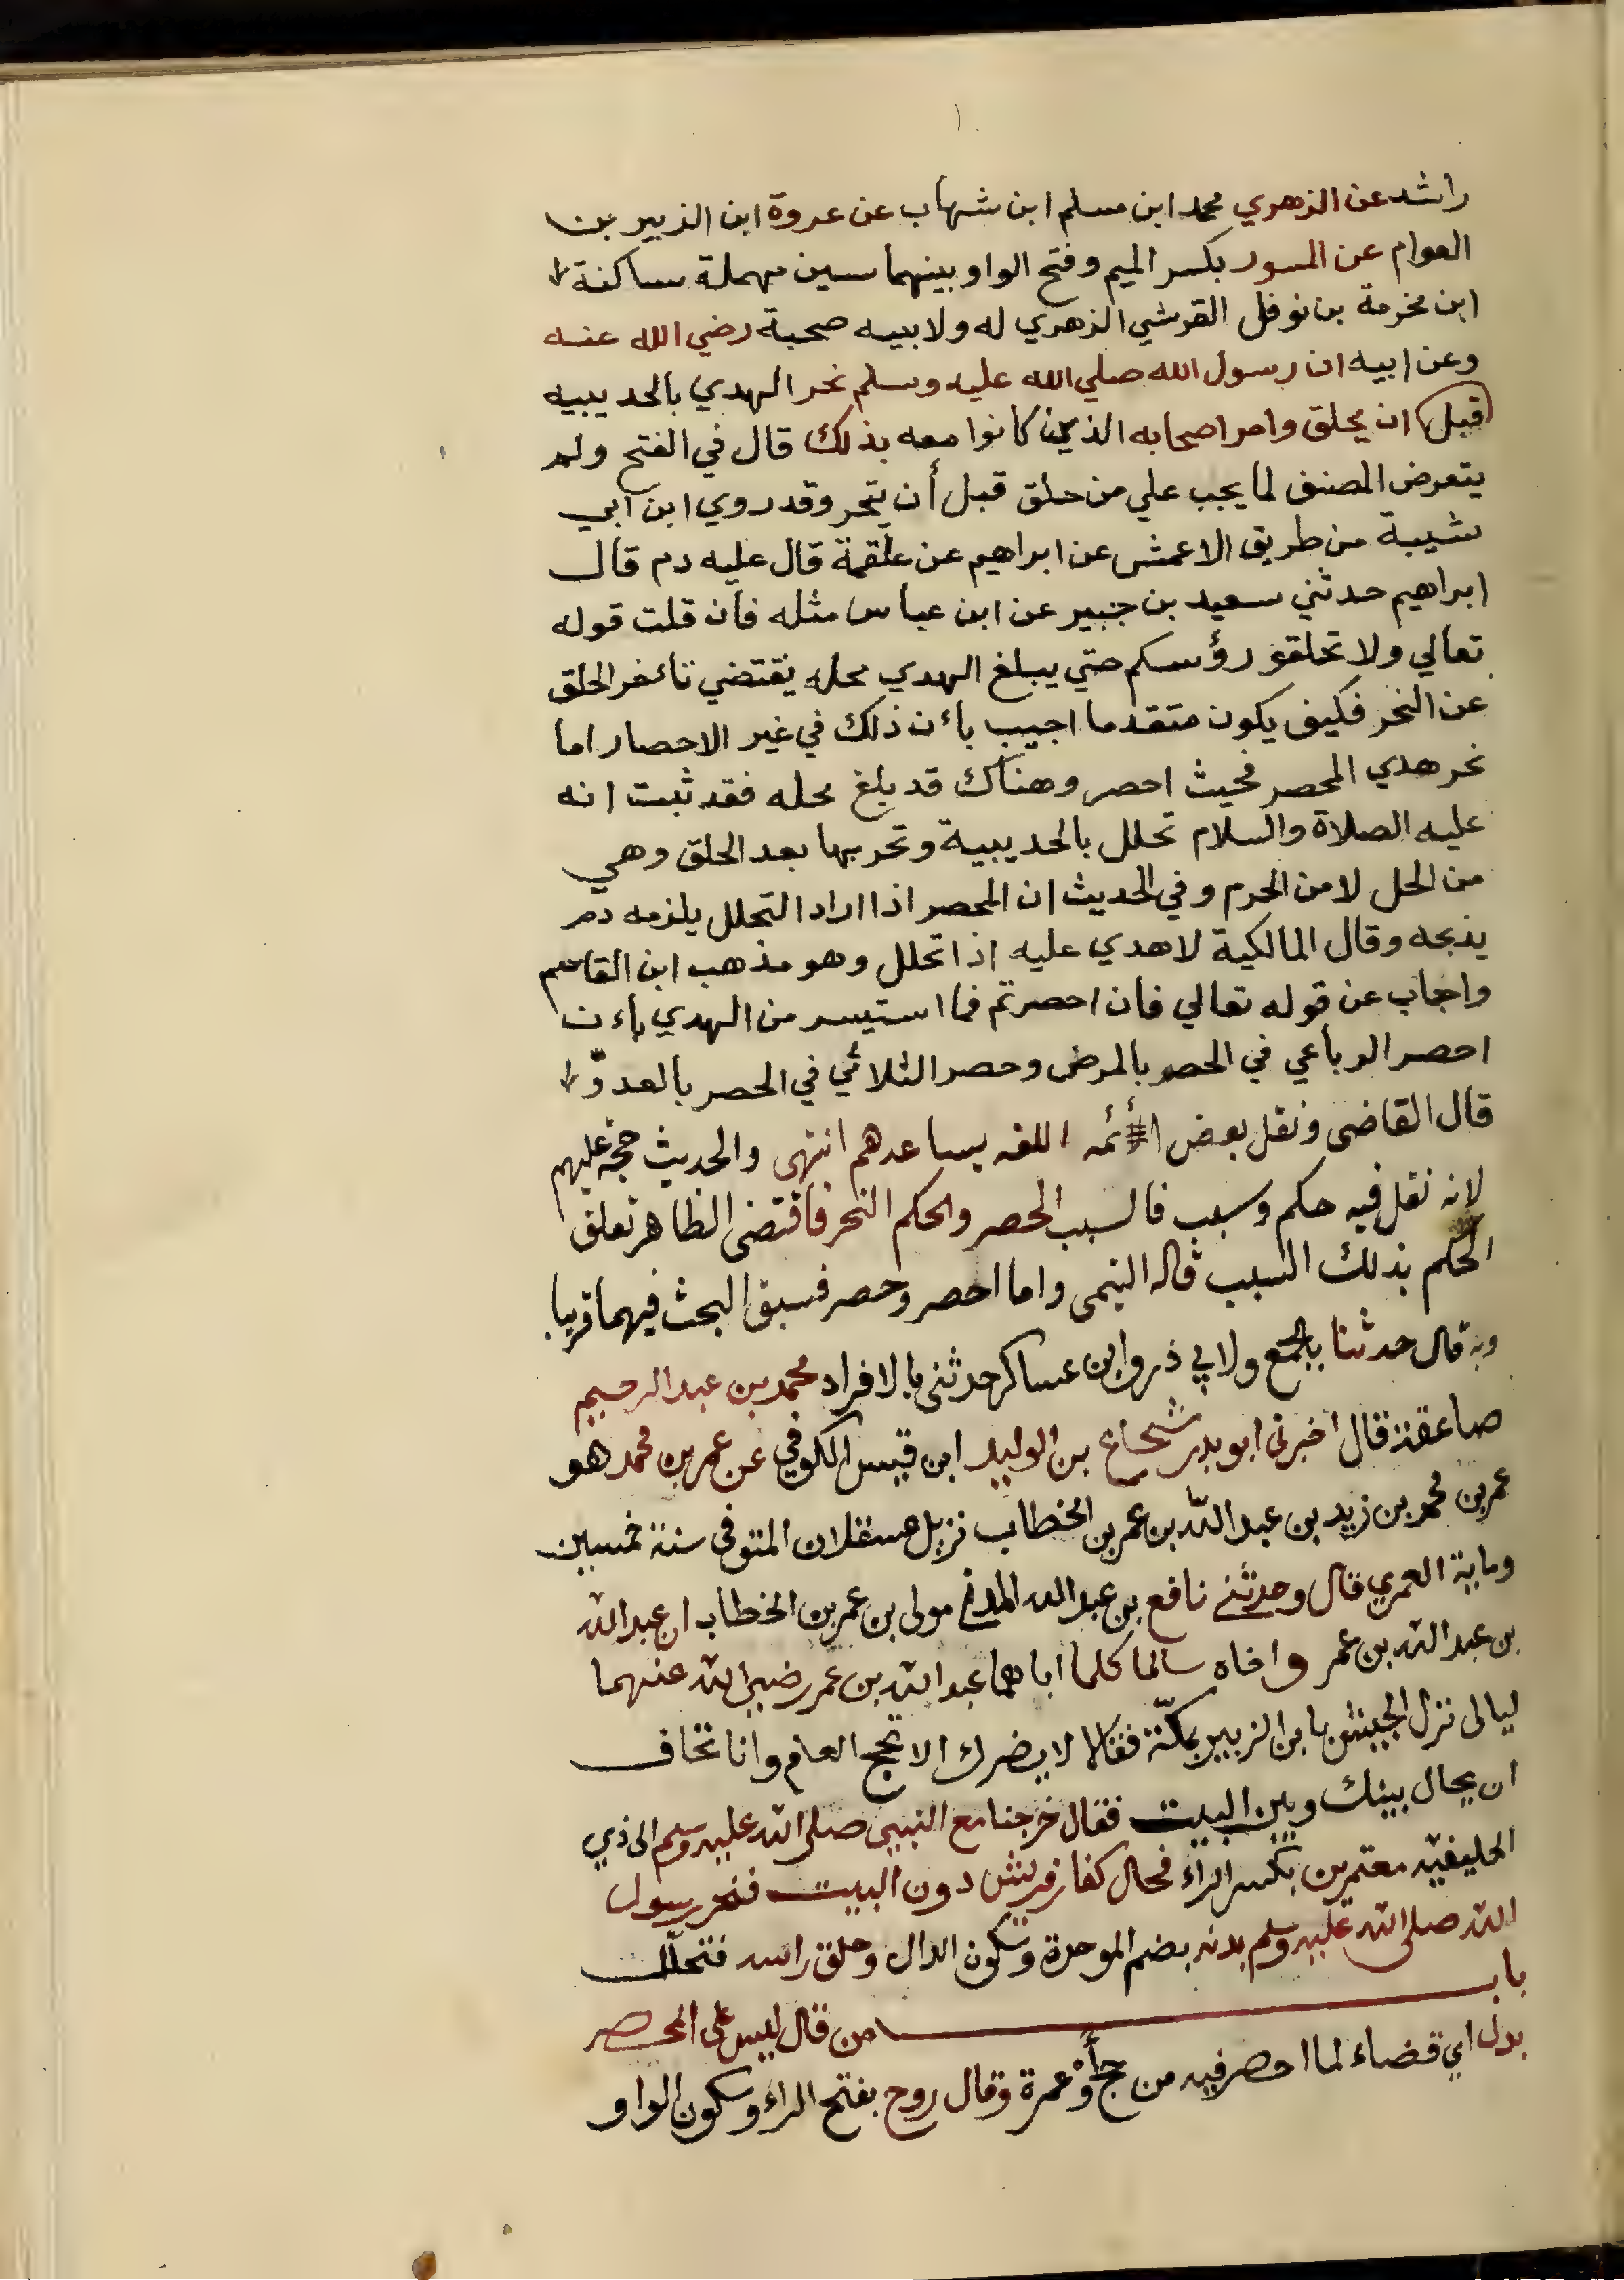 راشد عن الزهري محمد ابن مسلم ابن شهاب عن عروة ابن الزبير بن
العوام عن المسور بكسر الميم وفتح الواو بينهما سين مهملة ساكنة
ابن مخرمة بن نوفل القرشي الزهري له ولابيه صحبة رضي الله عنه
وعن ابيه ان رسول الله صلي الله عليه وسلم نحر الهدي بالحديبيه
قبل ان يحلق وامر اصحابه الذين كانوا معه بذلك قال في الفتح ولم
يتعرض المصنف لما يجب علي من حلق قبل أن ينحر وقد روي ابن ابي
شيبة من طريق الاعمش عن ابراهيم عن علقمة قال عليه دم قال
ابراهيم حدثني سعيد بن جبير عن ابن عباس مثله فان قلت قوله
تعالي ولا تحلقو رؤسكم حتي يبلغ الهدي محله يقتضي تاءخر الحلق
عن النحر فكيف يكون متقدما اجيب باءن ذلك في غير الاحصار اما
نحر هدي المحصر فحيث احصر وهناك قد بلغ محله فقد ثبت انه
عليه الصلاة والسلام تحلل بالحديبية ونحر بها بعد الحلق وهي
من الحل لا من الحرم وفي الحديث ان المحصر اذا اراد التحلل يلزمه دم
يذبحه وقال المالكية لا هدي عليه اذا تحلل وهو مذهب ابن القاسم
واجاب عن قوله تعالي فان احصرتم فما استيسر من الهدي باءن
احصر الرباعي في الحصر بالمرض وحصر الثلاثي في الحصر بالعدوّ
قال القاضى ونقل بعض الأئمه اللغه يساعدهم انتهى والحديث حجة عليهم
لانه نقل فيه حكم وسبب فالسبب الحصر والحكم النحر فاقتضى الظاهر تعلق
الحكم بذلك السبب قاله التيمى واما احصر وحصر فسبق البحث فيهما قريبا
وبه قال حدثنا بالجمع ولابي ذر وابن عساكر حدثنى بالافراد محمد بن عبد الرحيم
صاعقة قال اخبرنى ابو بدر شجاع بن الوليد ابن قيس الكوفي عن عمر بن محمد هو
عمر بن محمد بن زيد بن عبد الله بن عمر بن الخطاب نزيل عسقلان المتوفى سنة خمسين
وماية العمري قال وحدثنى نافع بن عبد الله المدنى مولى بن عمر بن الخطاب ان عبد الله
بن عبد الله بن عمر واخاه سالما كلما اباهما عبد الله بن عمر رضى الله عنهما
ليالى نزل الجيش بابن الزبير بمكّة فقالا لا يضرك الا تحج العام وانا نخاف
ان يحال بينك وبين البيت فقال خرجنا مع النبي صلى الله عليه وسلم الى ذي
الحليفيه معتمرين بكسر الراء فحال كفار قريش دون البيت فنحر رسول
الله صلى الله عليه وسلم بدنه بضم الموحدة وسكون الدال وحلق راسه فتحلل
باب من قال ليس على المحصر
بدل اي قضاء لما احصر فيه من حج أوْ عمرة وقال روح بفتح الراء وسكون الواو